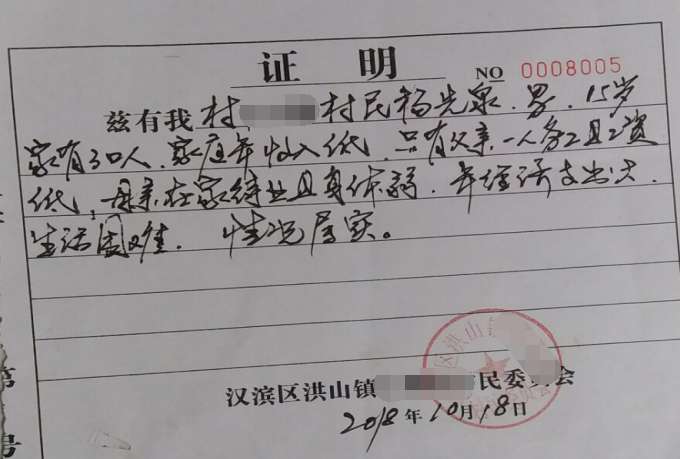 证 明
NO 0008005
兹有我村 村民杨先泉.男.15岁
家有30人.家庭年收入低.只有父亲一人务工且工资
低,母亲在家待业且身体弱.年经济支出大.
生活困难. 情况属实。
汉滨区洪山镇 民委员会
2018年10月18日
区洪山镇
第
号